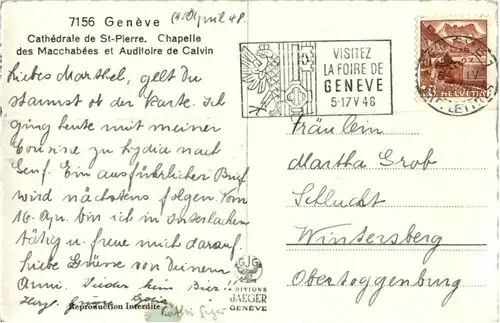 7156 Genève
(10. April 48.
Cathédrale de St-Pierre. Chapelle
des Macchabées et Auditoire de Calvin
Liebes Marthel, gelt Du
staunst ob der Karte. Ich
ging heute mit meiner
Cousine zu Lydia nach
Genf. Ein ausführlicher Brief
wird nächstens folgen. Vom
16. Apr. bin ich in Interlaken
tätig u. freue mich darauf.
Liebe Grüsse von Deinem
Anni. Leider kein Bier!!
Herzl. Grüsse
Reproduction Interdite
VISITEZ
LA FOIRE DE
GENEVE
5-17 V 46
HELVETIA
Fräulein
Martha Grob
Schlucht
Wintersberg
Obertoggenburg
GJG
EDITIONS
JAEGER
GENÈVE